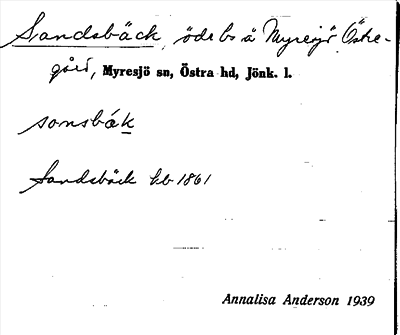 Sandsbäck, öde bs å Myresjö Östre-
gård, Myresjö sn, Östra hd, Jönk. l.
sonsbák
Sandsbäck kb 1861
Annalisa Anderson 1939